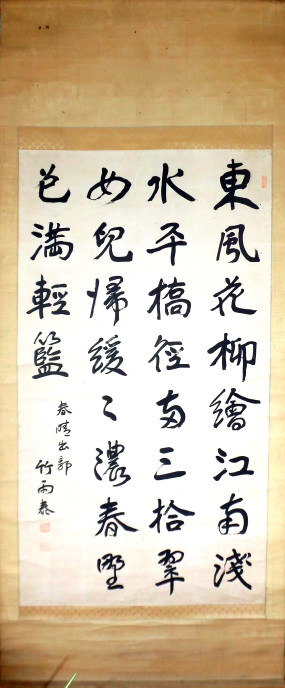 東風花柳繪江南淺
水平橋径両三拾翠
女兒帰緩〻濃春野
色滿輕籃
春晴出郭
竹雨泰